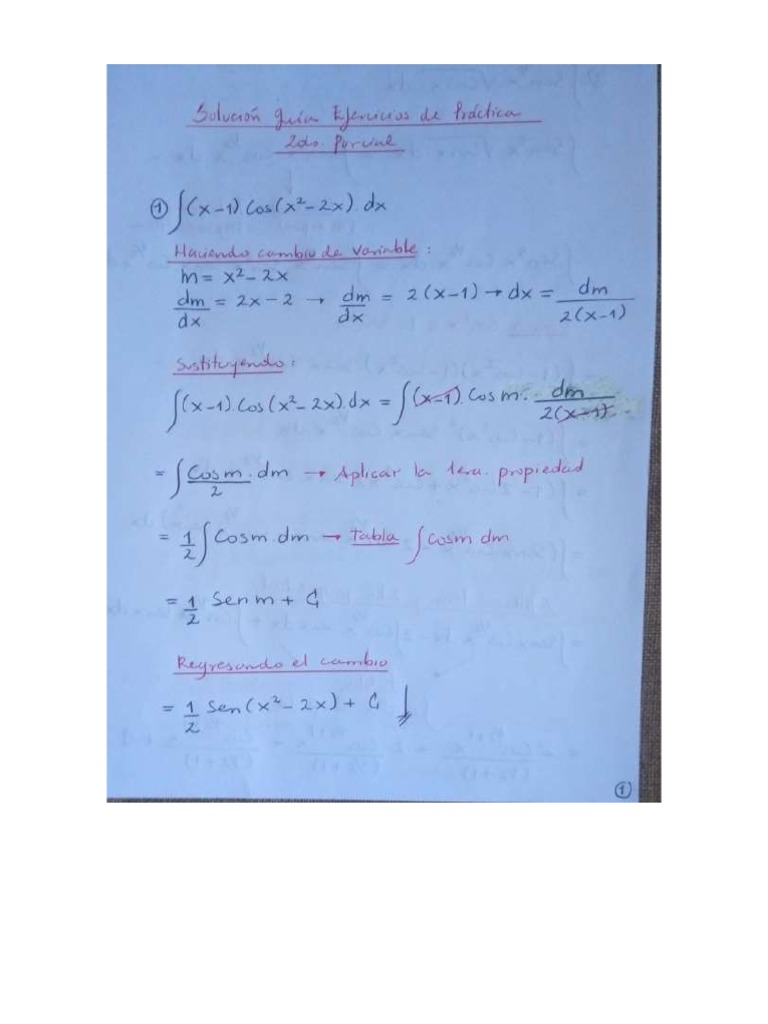 Solución guía Ejercicios de Práctica
2do. Parcial
① ∫(x-1).Cos(x²-2x).dx
Haciendo cambio de variable:
m = x²-2x
dm/dx = 2x-2 → dm/dx = 2(x-1) → dx = dm/2(x-1)
Sustituyendo:
∫(x-1).Cos(x²-2x).dx = ∫(x-1).Cosm.dm/2(x-1)
= ∫Cosm.dm/2 → Aplicar la 1era. propiedad
= 1/2 ∫Cosm.dm → Tabla ∫cosm dm
= 1/2 Senm + C
Regresando el cambio
= 1/2 Sen(x²-2x) + C
①